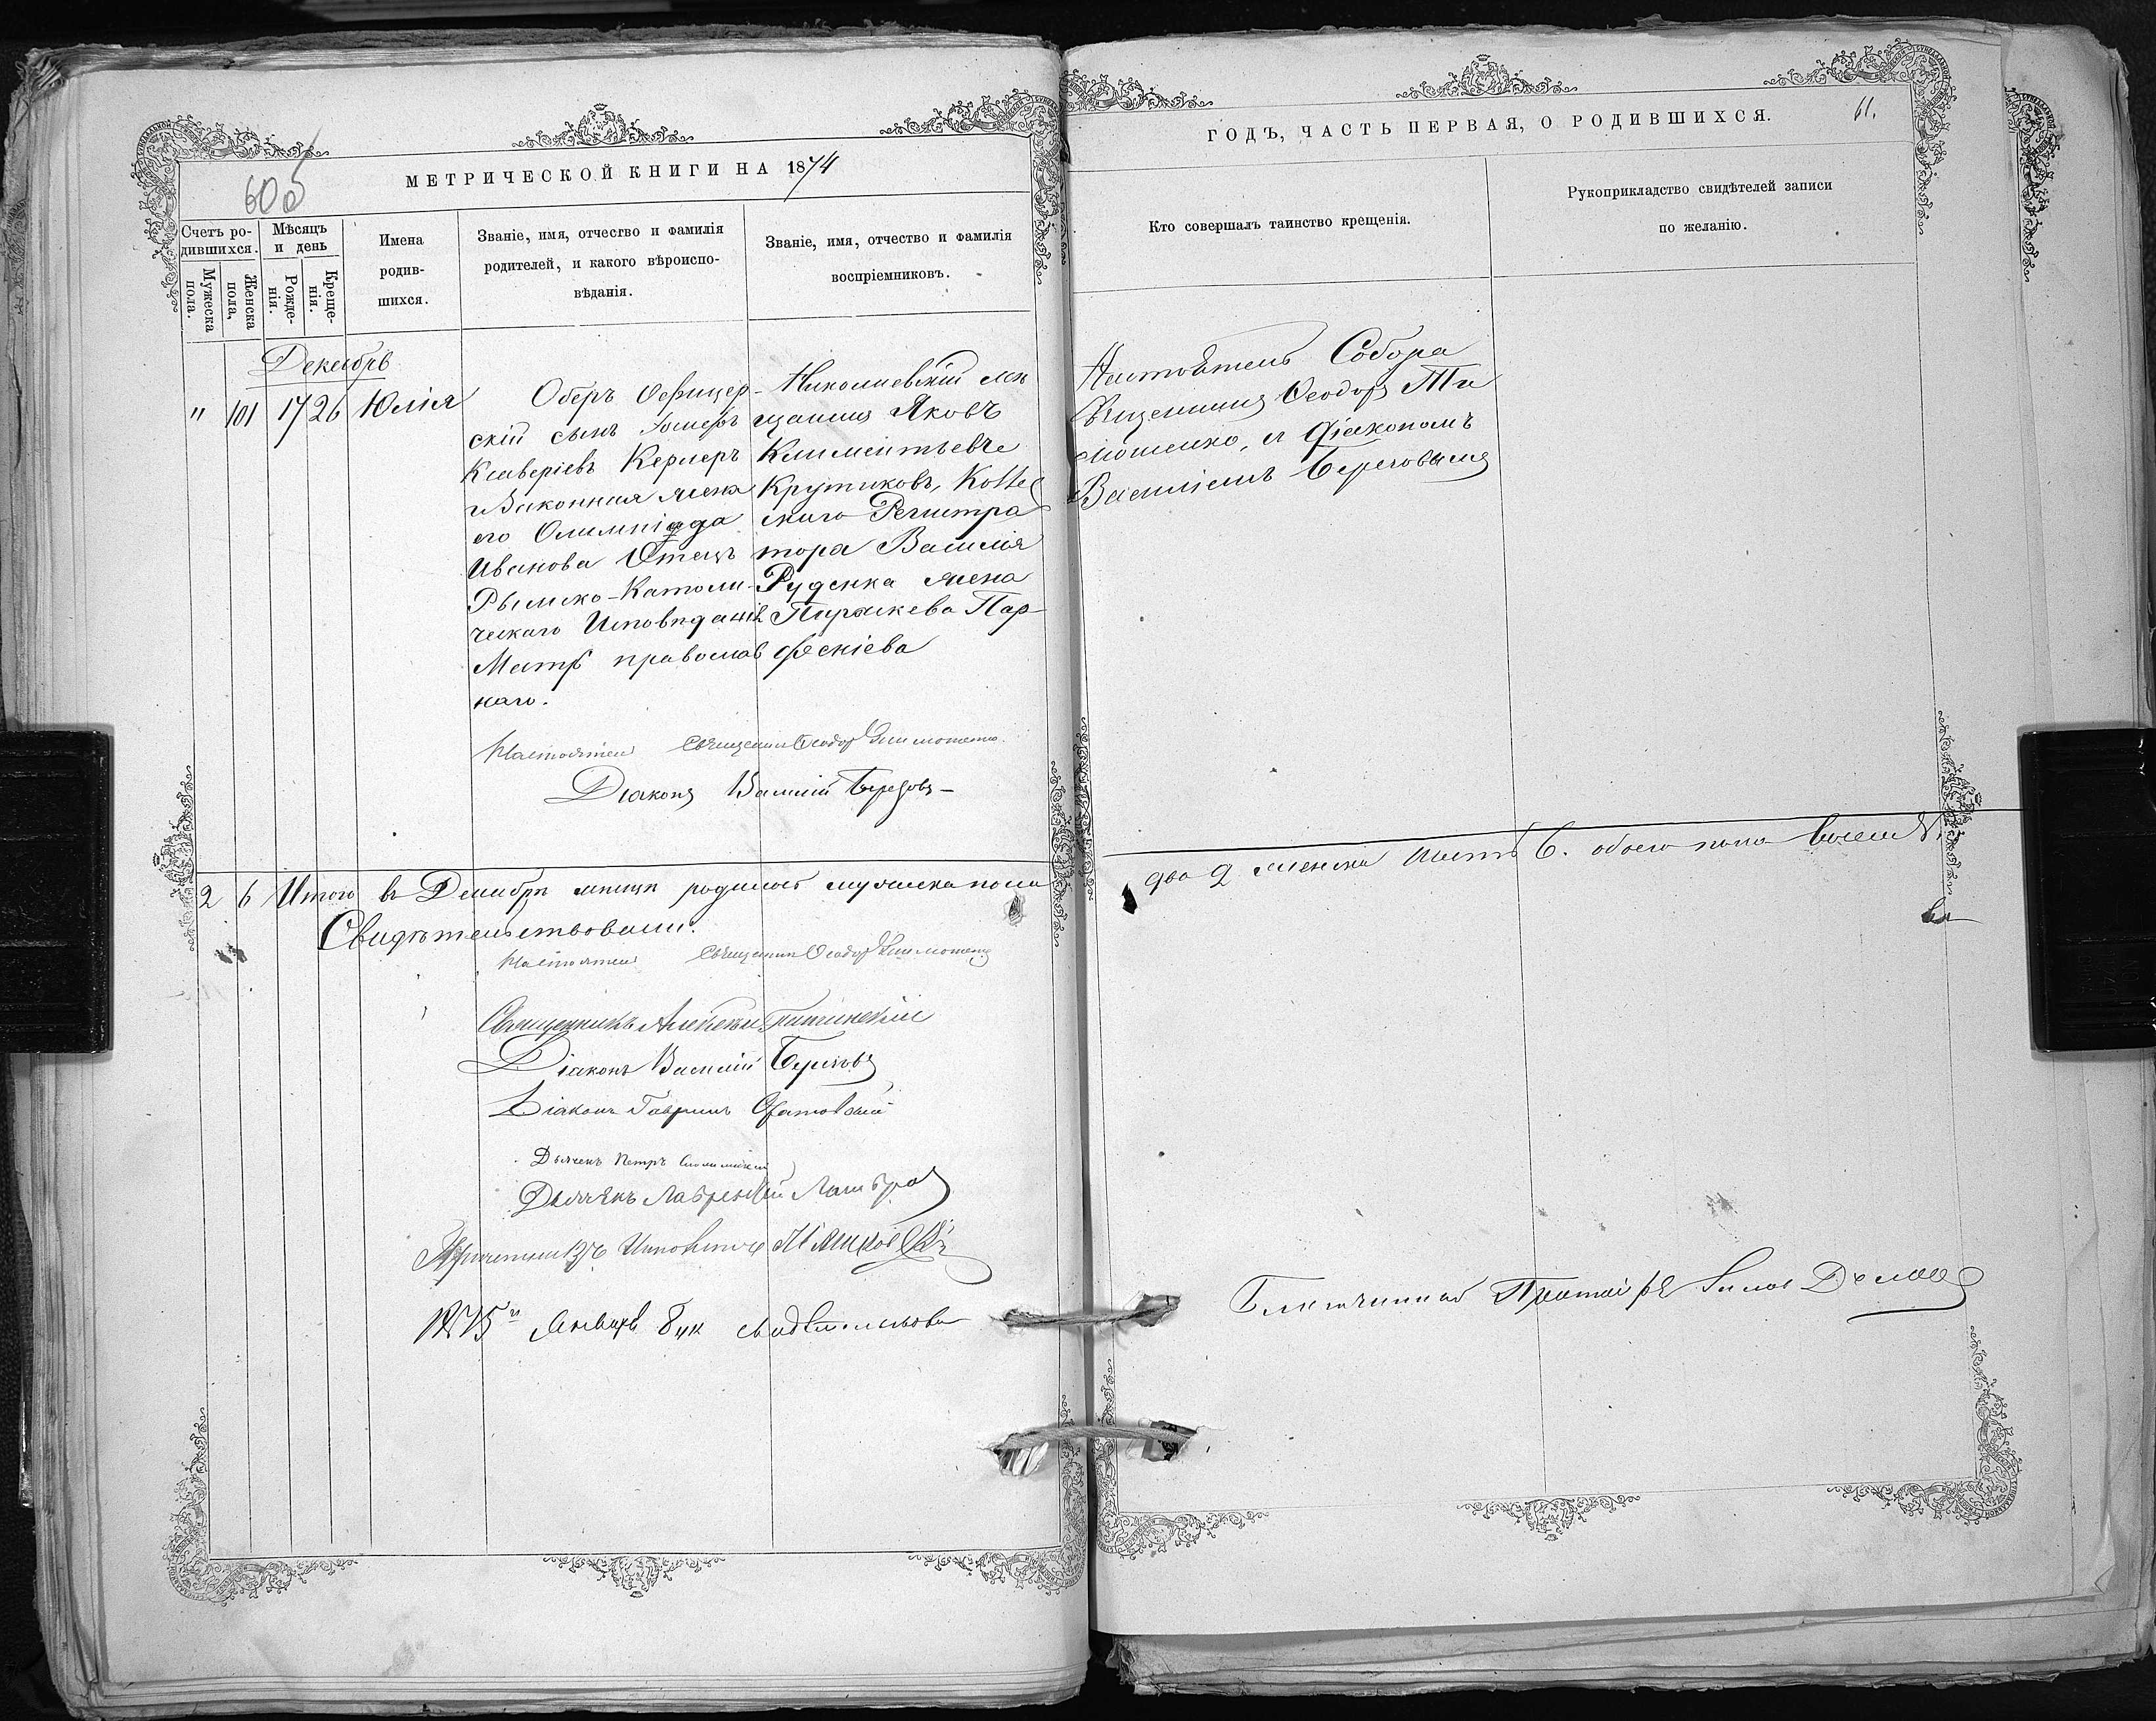 МЕТРИЧЕСКОЙ КНИГИ НА 1874
Счетъ ро-
дившихся.
Мужеска
пола.
Женска
пола,
Мѣсяцъ
и день
Рожде-
нія.
Креще-
нія.
Имена
родив-
шихся.
Званіе, имя, отчество и фамилія
родителей, и какого вѣроиспо-
вѣданія.
Званіе, имя, отчество и фамилія
воспріемниковъ.
Декабрь
" 101 17 26 Юлія
Оберъ Офицер-
скій сынъ
Ксаверіевъ Кернеръ
и Законная жена
его Олимпіада
Иванова Отецъ
Рымско-Католи-
ческаго Исповѣданія
Мать православ
наго.
Николаевскій мѣ
щанинъ Яковъ
Климентьевъ
Крутиковъ, Колле
скаго Регистра
тора Василія
Руденка жена
Параскева Пар-
феніева
Настоятель Священникъ Ѳеодоръ Тимошенко.
Діаконъ Василій Береговъ
2 6 Итого въ Декабрѣ мѣсяцѣ родилось мужеска пола
Свидѣтельствовали:
Настоятель Священникъ Ѳеодоръ Тимошенко
Священникъ Алексѣй
Діаконъ Василій Береговъ
Діаконъ Гавріилъ
Дьячекъ Петръ
Дьячекъ Лаврентій
1875 Января 8 дня свидѣтельствовалъ
ГОДЪ, ЧАСТЬ ПЕРВАЯ, О РОДИВШИХСЯ.
61.
Кто совершалъ таинство крещенія.
Рукоприкладство свидѣтелей записи
по желанію.
Настоятель Собора
Священникъ Ѳеодоръ Ти
мошенко, съ Діакономъ
Василіемъ Береговымъ
два 2 женска шесть 6. обоего пола восемь 8.
Благочинный Протоіерей